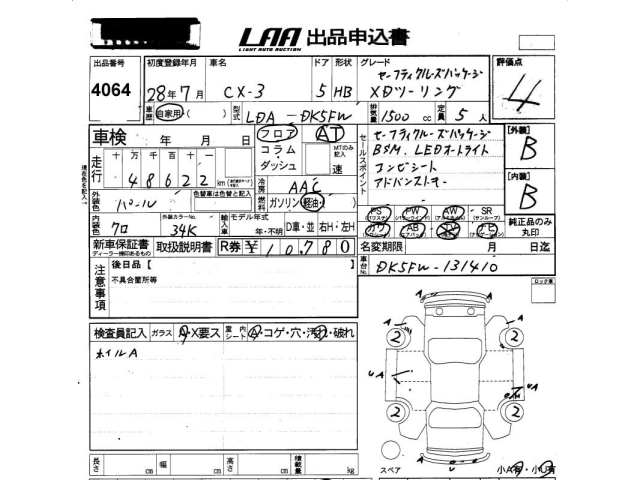 LAA 出品申込書
LIGHT AUTO AUCTION
出品番号 初度登録年月 車名 ドア 形状 グレード 評価点
セーフティクルーズパッケージ
4064 28年7月 CX-3 5 HB XDツーリング 4
車歴 自家用・( ) 型式 LDA-DK5FW 排気量 1500 cc 定員 5 人
車検 年 月 日 フロア AT セーフティクルーズパッケージ 【外装】
コラム MTのみ記入 BSM LEDオートライト B
走行 十万千百十一 ダッシュ 速 セールスポイント コンビシート
48622 km 冷房 AAC アドバンストキー 【内装】
外装色 パール 色替車は色替と記入 燃料 ガソリン・軽油・( ) B
内装色 クロ 外装カラーNo. 34K 輸入車 モデル年式 年・不明 D車・並 右H・左H
PS PW AW SR (サンルーフ) 純正品のみ丸印
AB TV ナビ
新車保証書 取扱説明書 R券 ¥ 10780 名変期限 月 日迄
ディーラー捺印あるもの
注意事項 後日品【 】 車台No. DK5FW-131410
不具合箇所等
ロック車
検査員記入 ガラス A・X要ス 室内シート A・コゲ・穴・汚れ・破れ
ホイルA
A A
2 2
UA A
UA
2 2
A A
UA
長さ cm 幅 cm 高さ cm 積載量 kg
スペア 小A有・小U有